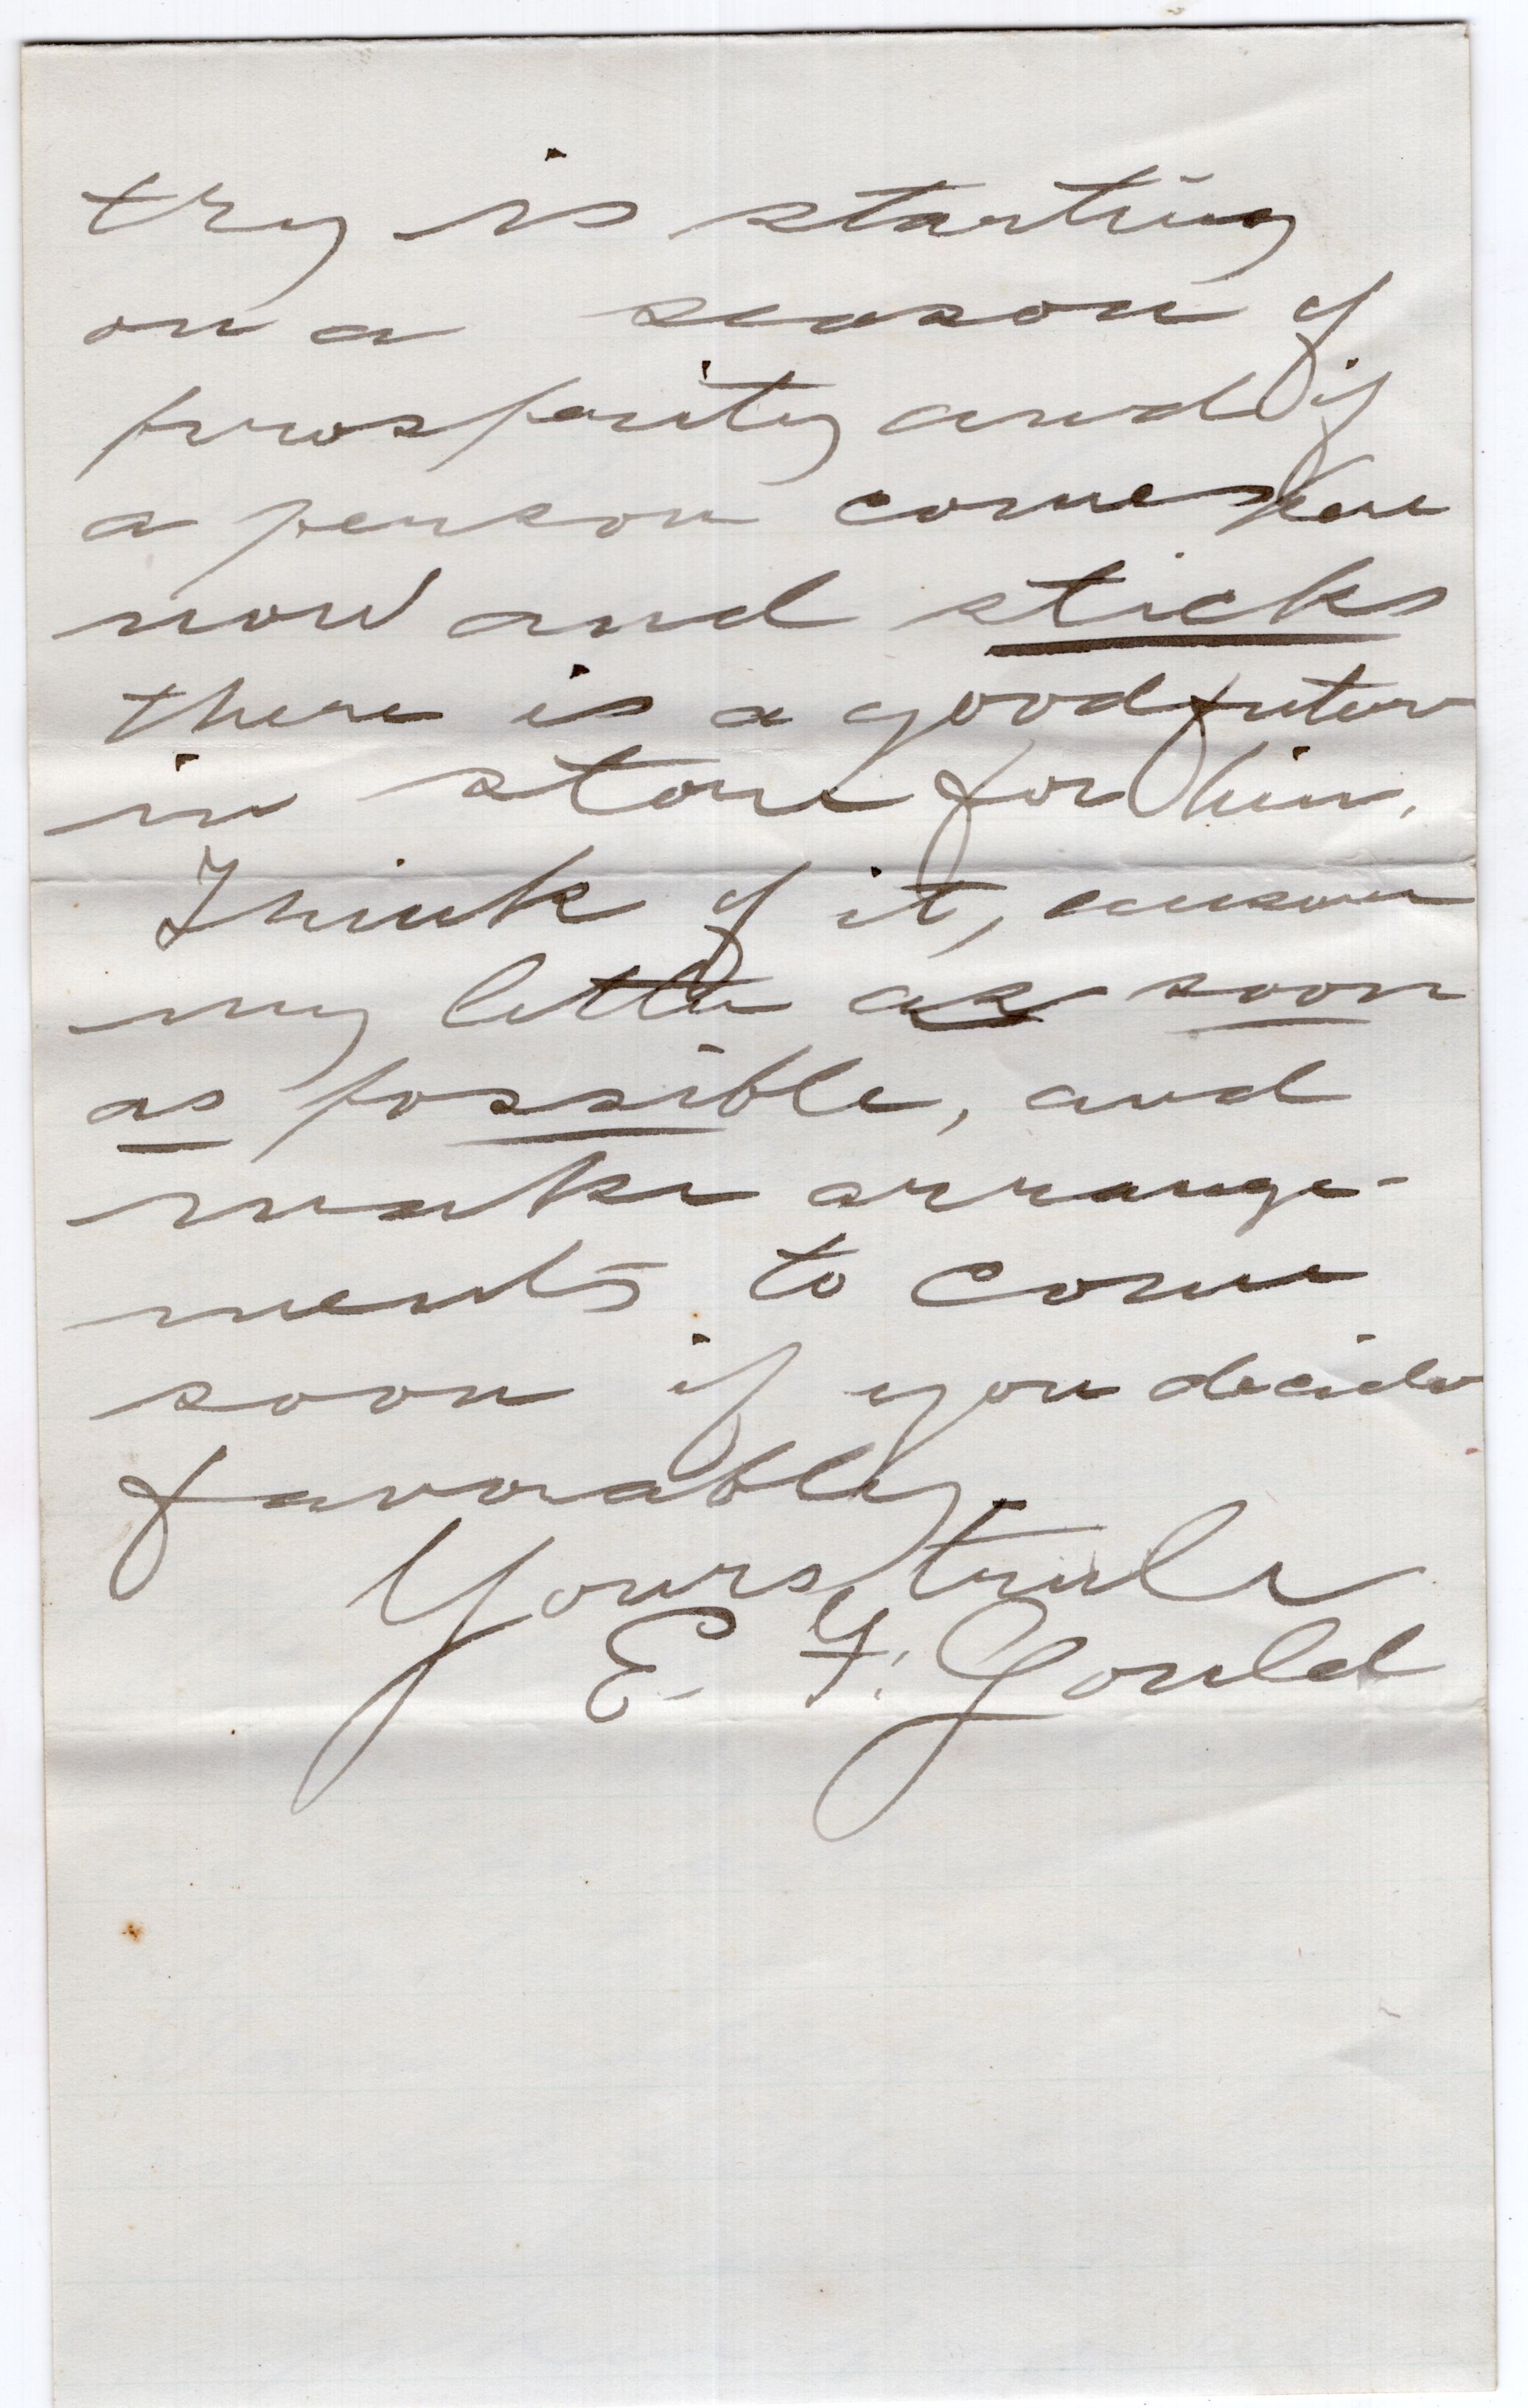 try is starting
on a season of
prosperity and if
a person comes here
now and sticks
there is a good future
in store for him.
Think of it, answer
my letter as soon
as possible, and
make arrange-
ments to come
soon if you decide
favorably.
Yours truly
E. F. Gould